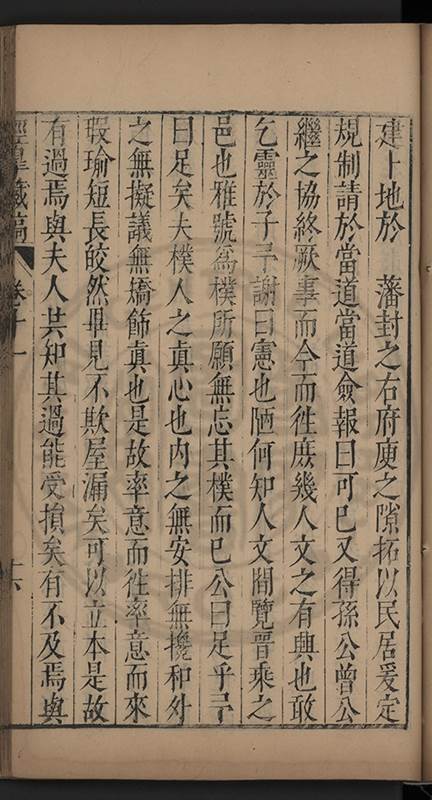 建卜地於　藩封之右府庾之隙拓以民居爰定
規制請於當道當道僉報曰可已又得孫公曾公
繼之協終厥事而今而徃庶幾人文之有興也敢
乞靈於子予謝曰憲也陋何知人文間覽晉乘之
邑也雅號為樸所願無忘其樸而已公曰足乎予
曰足矣夫樸人之真心也内之無安排無攙和外
之無擬議無矯飾真也是故率意而徃率意而來
瑕瑜短長皎然畢見不欺屋漏矣可以立本是故
有過焉與夫人共知其過能受損矣有不及焉與
涇皐藏稿
卷十一
十六